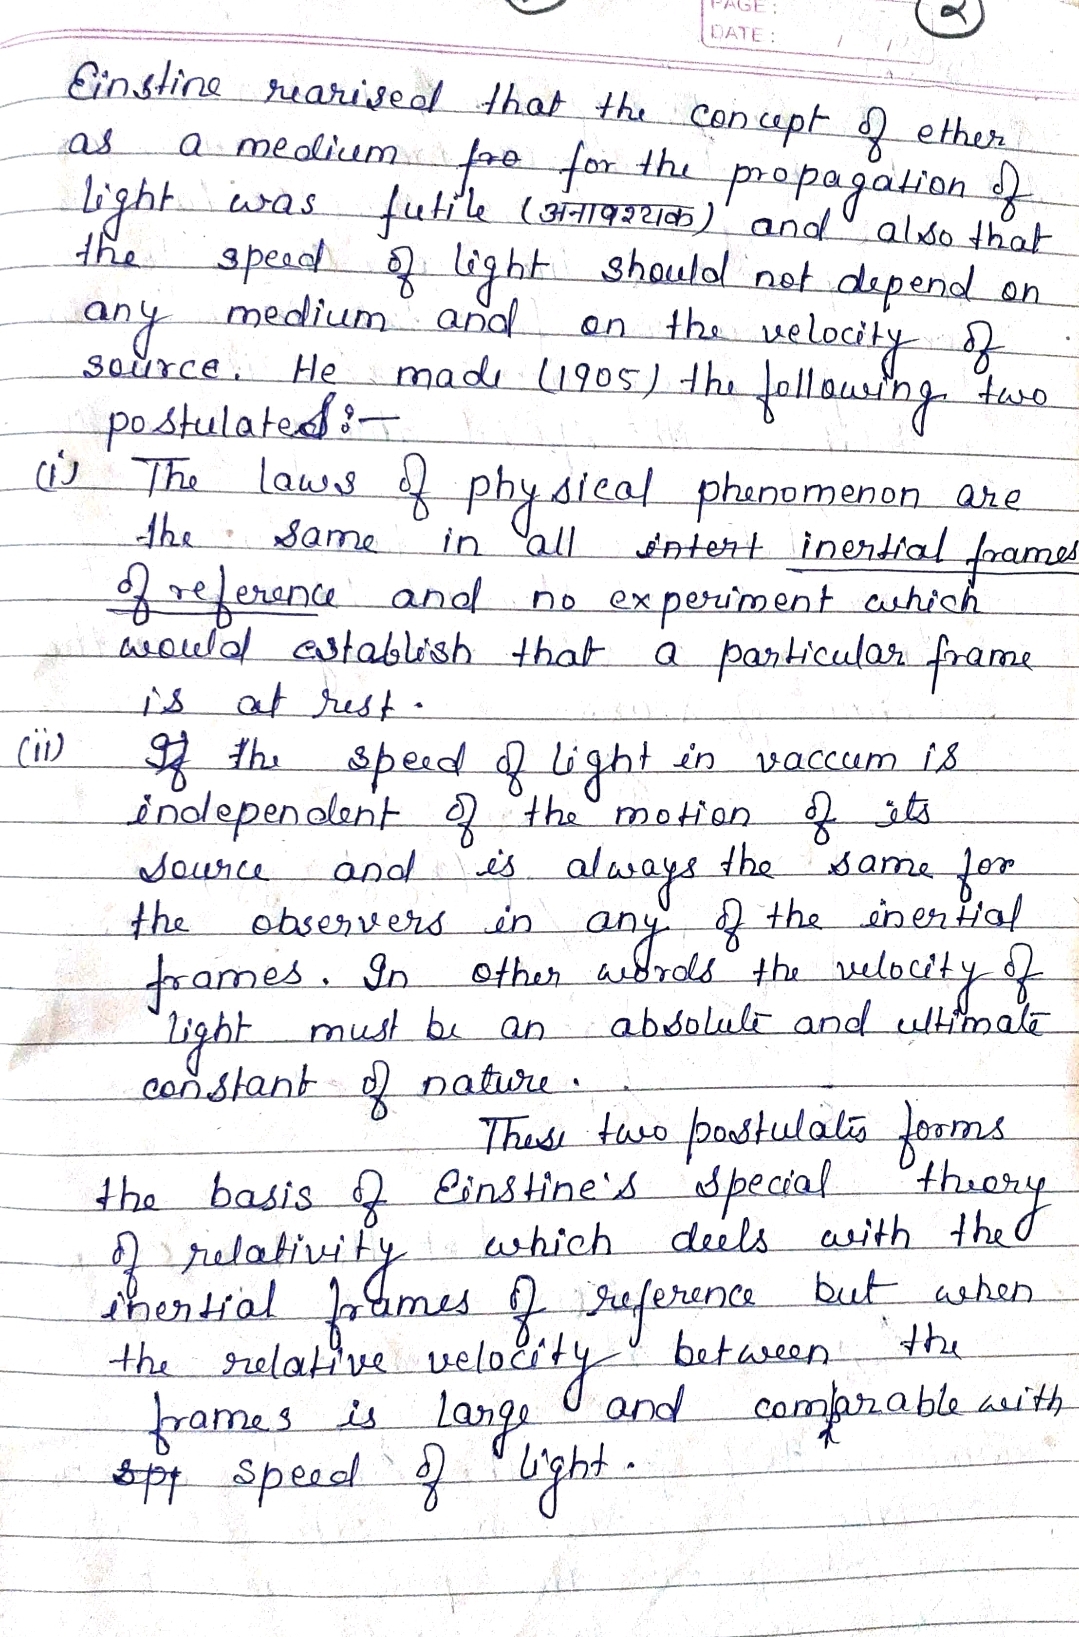 PAGE:
2
DATE: / /
Einstine rearised that the concept of ether
as a medium fro for the propagation of
light was futile (अनावश्यक) and also that
the speed of light should not depend on
any medium and on the velocity of
source. He made (1905) the following two
postulated:-
(i) The laws of physical phenomenon are
the same in all intert inertial frames
of reference and no experiment which
would establish that a particular frame
is at rest.
(ii) If the speed of light in vaccum is
independent of the motion of its
source and is always the same for
the observers in any of the inertial
frames. In other words the velocity of
light must be an absolute and ultimate
constant of nature.
These two postulates forms
the basis of Einstine's special theory
of relativity which deels with the
inertial frames of reference but when
the relative velocity between the
frames is large and comparable with
spt speed of light.